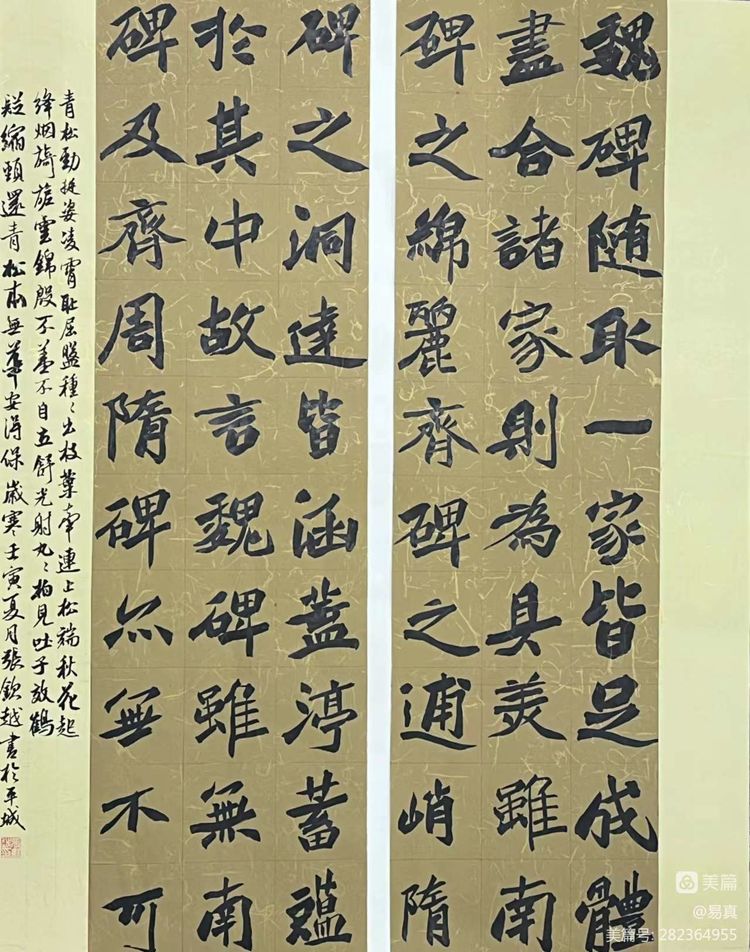 魏碑随取一家皆足成體
盡合諸家則為具美雖南
碑之綿麗齊碑之逋峭隋
碑之洞達皆涵蓋渟蓄蘊
於其中故言魏碑雖無南
碑及齊周隋碑亦無不可
青松勁挺姿凌霄耻屈盤種〻出枝葉牽連上松端秋花起
絳烟旖旎雲錦殷不羞不自立舒光射丸〻柏見吐子效鶴
疑縮頸還青松本無華安得保歲寒壬寅夏月張欽越書於平城
美篇
@易真
美篇号: 282364955